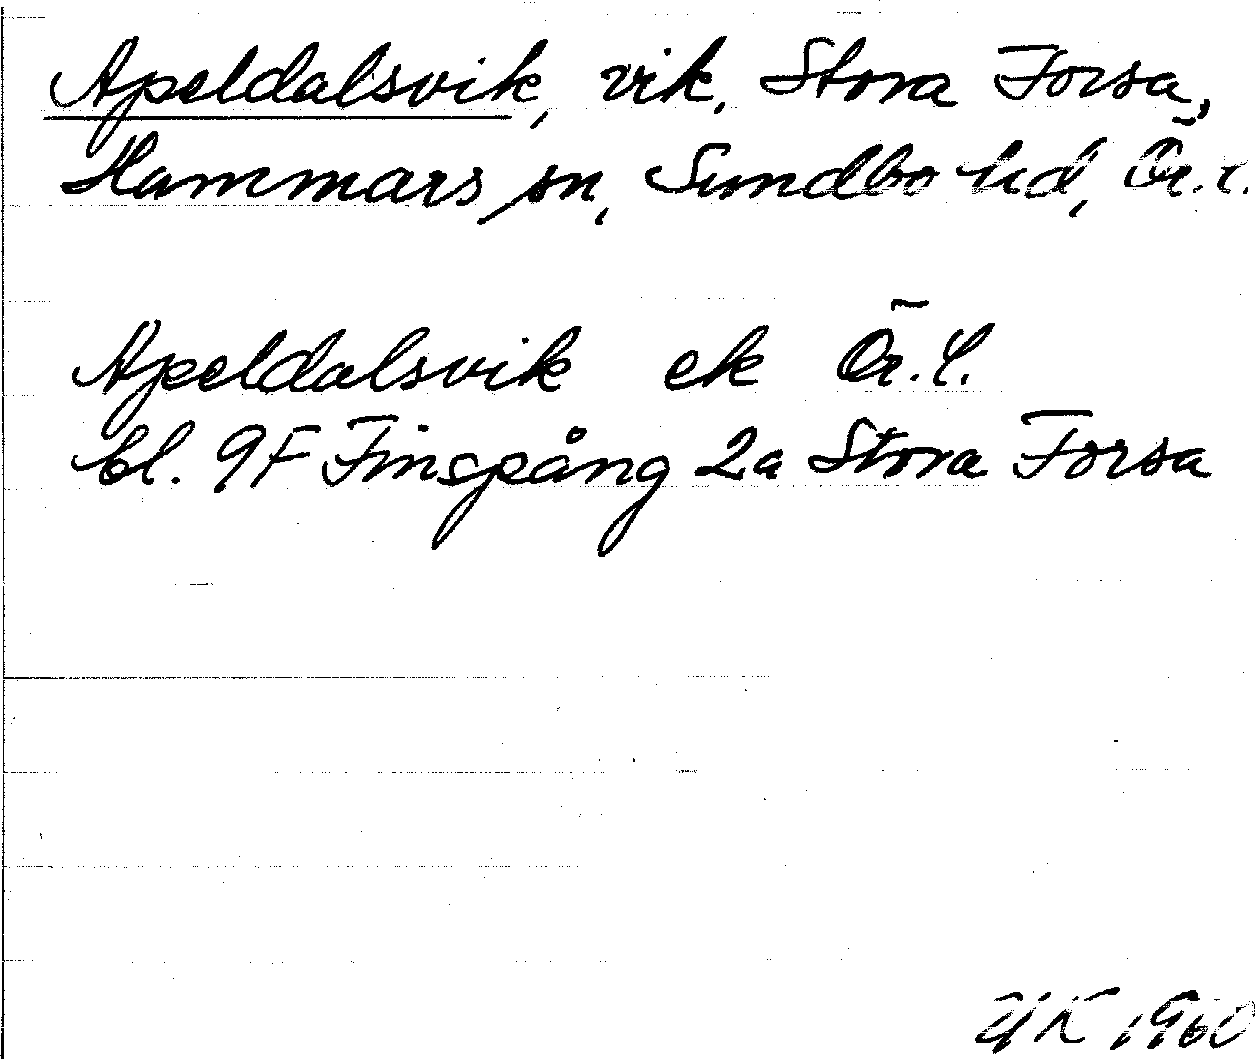 Apeldalsvik, vik, Stora Forsa,
Hammars sn, Sundbo hd, Ör. l.
Apeldalsvik ek Ör. l.
bl. 9F Finspång 2a Stora Forsa
1960